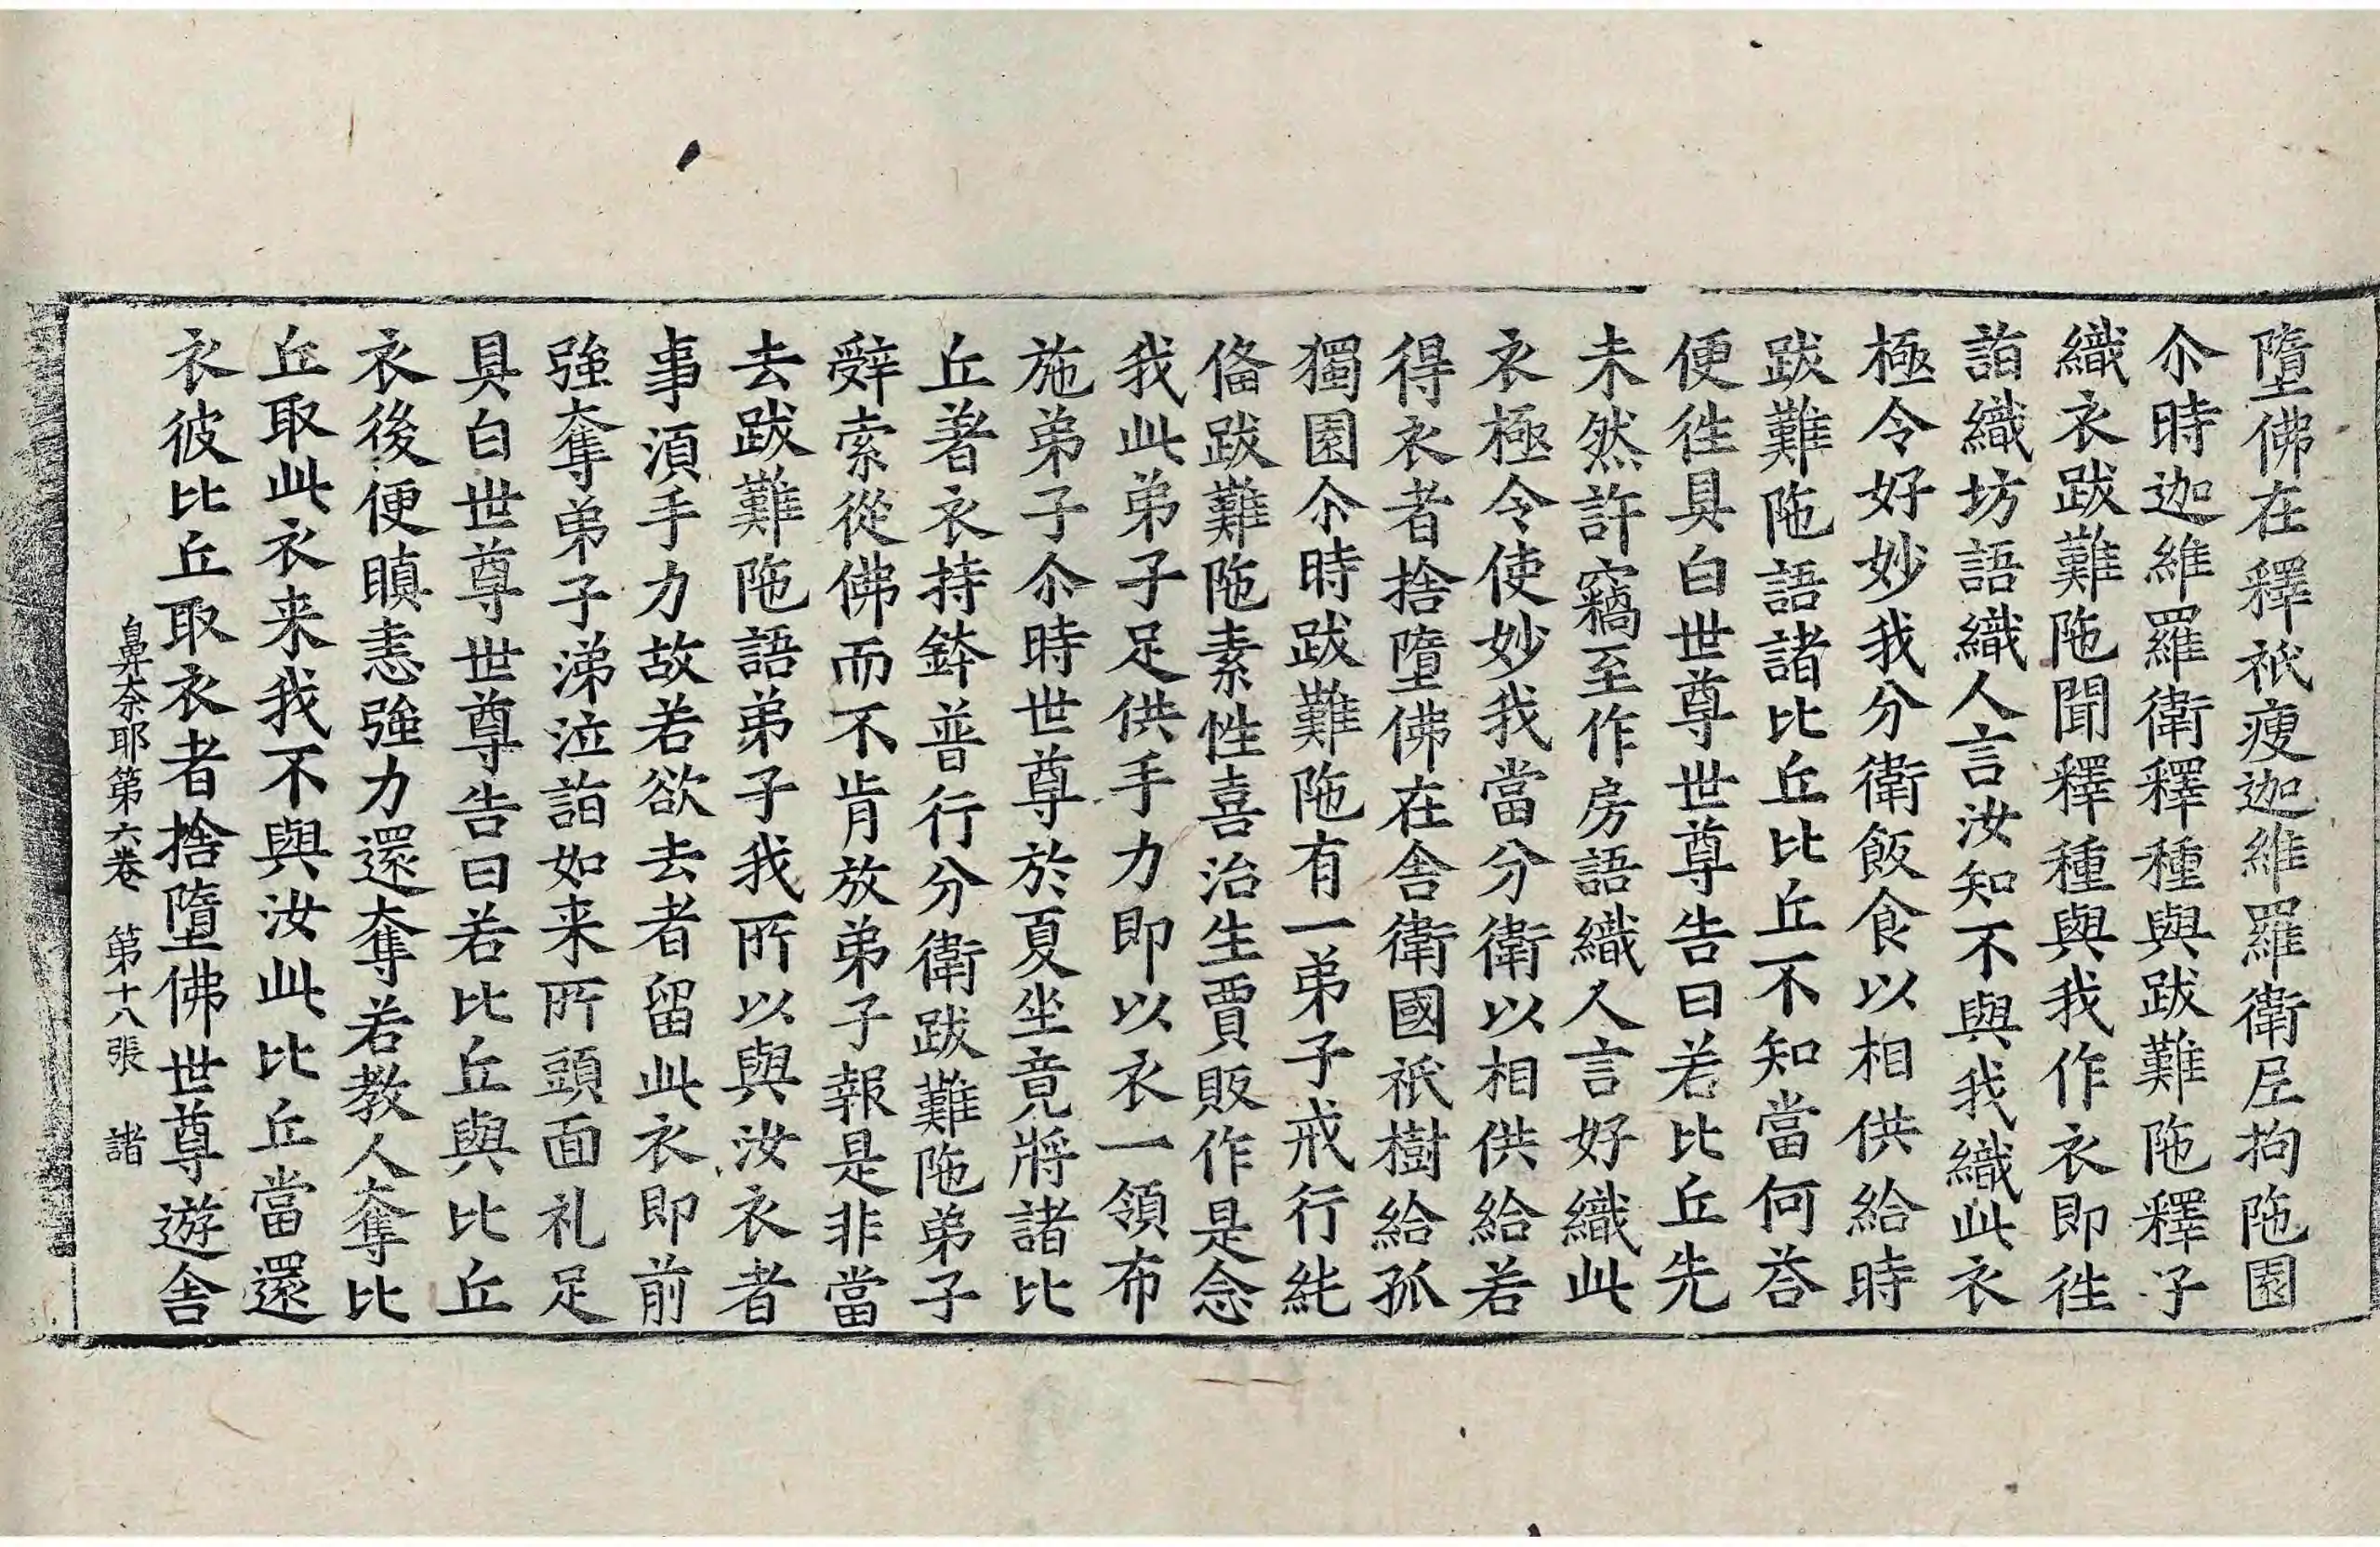 墮佛在釋祇瘦迦維羅衛尼拘陁園
尒時迦維羅衛釋種與跋難陁釋子
織衣跋難陁聞釋種與我作衣即徃
詣織坊語織人言汝知不與我織此衣
極令好妙我分衛飯食以相供給時
跋難陁語諸比丘比丘不知當何荅
便徃具白世尊世尊告曰若比丘先
未然許竊至作房語織人言好織此
衣極令使妙我當分衛以相供給若
得衣者捨墮佛在舍衛國祇樹給孤
獨園尒時跋難陁有一弟子戒行純
俻跋難陁素性喜治生賈販作是念
我此弟子足供手力即以衣一領布
施弟子尒時世尊於夏坐竟將諸比
丘著衣持鉢普行分衛跋難陁弟子
辤索從佛而不肯放弟子報是非當
去跋難陁語弟子我所以與汝衣者
事湏手力故若欲去者留此衣即前
強奪弟子涕泣詣如来所頭面礼足
具白世尊世尊告曰若比丘與比丘
衣後便瞋恚強力還奪若教人奪比
丘取此衣来我不與汝此比丘當還
衣彼比丘取衣者捨墮佛世尊遊舍
鼻奈耶第六卷　第十八張　諸